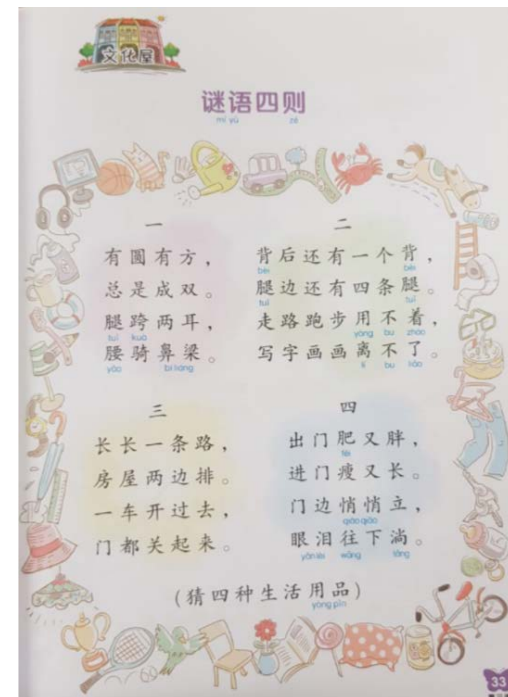 文化屋
谜语四则
mí yǔ zé
一
有圆有方，
总是成双。
腿跨两耳，
tuǐ kuà
腰骑鼻梁。
yāo bí liáng
二
背后还有一个背，
bèi bèi
腿边还有四条腿。
tuǐ tuǐ
走路跑步用不着，
yòng bu zháo
写字画画离不了。
lí bu liǎo
三
长长一条路，
房屋两边排。
一车开过去，
门都关起来。
四
出门肥又胖，
féi
进门瘦又长。
门边悄悄立，
qiāo qiāo
眼泪往下淌。
yǎn lèi wǎng tǎng
（猜四种生活用品）
yòng pǐn
33